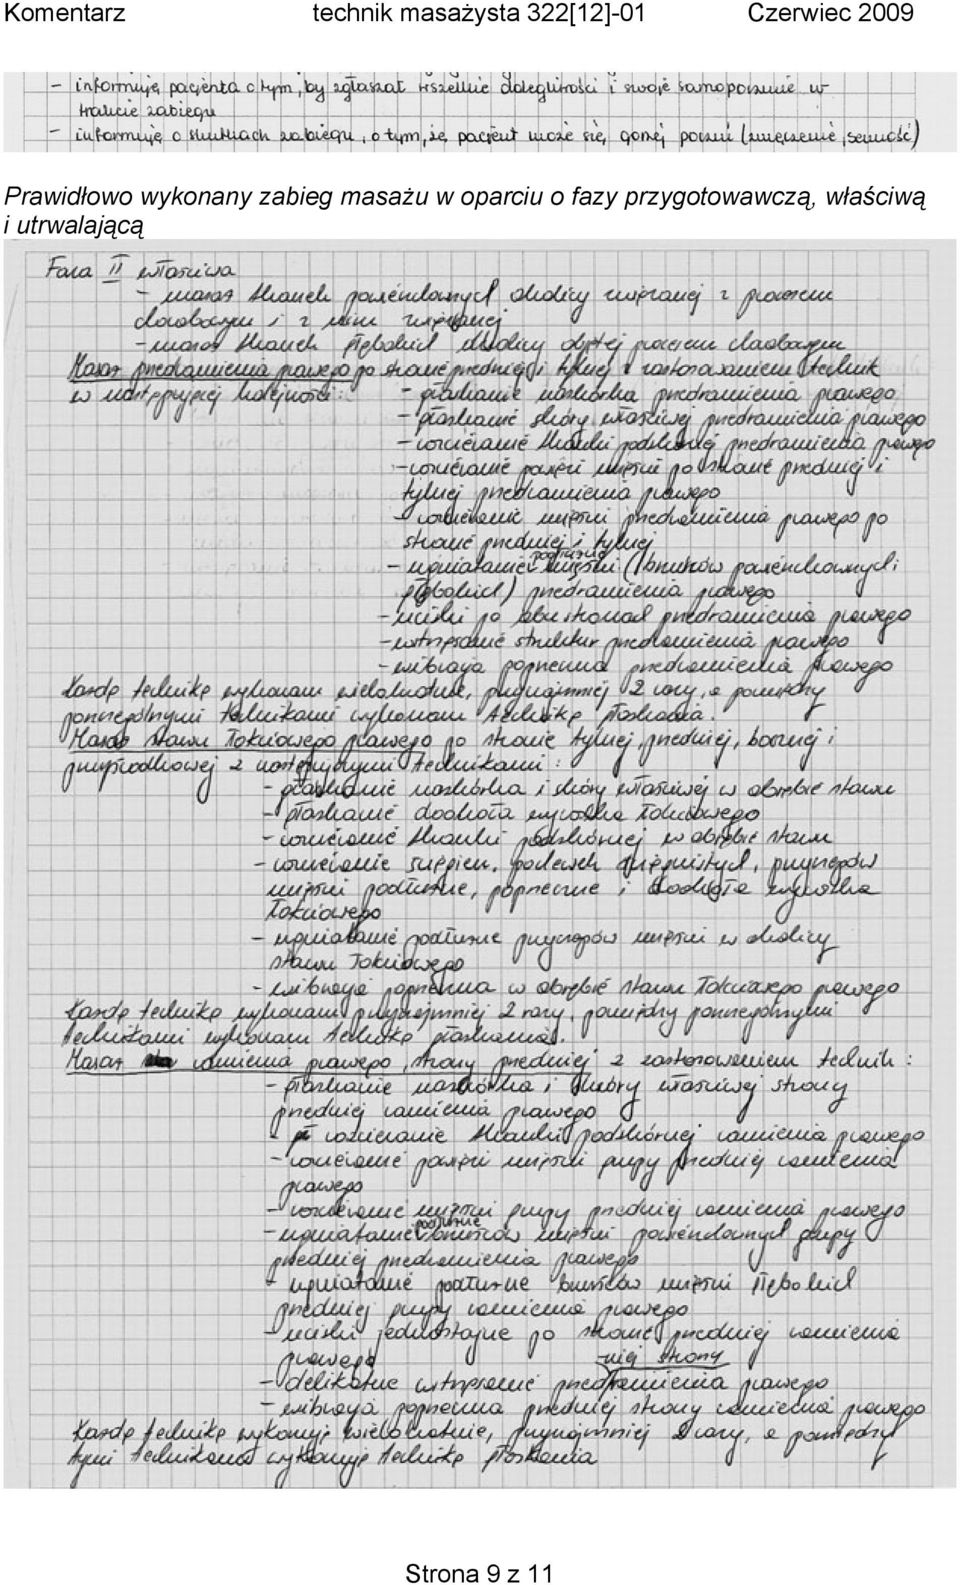 Komentarz technik masażysta 322[12]-01 Czerwiec 2009
- informuję pacjenta o tym, by zgłaszał wszelkie dolegliwości i swoje samopoczucie w
trakcie zabiegu
- informuję o skutkach zabiegu, o tym, że pacjent może się gorzej poczuć (zmęczenie, senność)
Prawidłowo wykonany zabieg masażu w oparciu o fazy przygotowawczą, właściwą
i utrwalającą
Faza II właściwa
- masaż tkanek powierzchownych okolicy związanej z procesem
chorobowym i z nim związanej
- masaż tkanek głębokich okolicy objętej procesem chorobowym
Masaż przedramienia prawego po stronie przedniej i tylnej z zastosowaniem technik
w następującej kolejności: - głaskanie naskórka przedramienia prawego
- głaskanie skóry właściwej przedramienia prawego
- rozcieranie tkanki podskórnej przedramienia prawego
- rozcieranie powięzi mięśni po stronie przedniej i
tylnej przedramienia prawego
- rozcieranie mięśni przedramienia prawego po
stronie przedniej i tylnej
- ugniatanie podłużne mięśni (brzuśców powierzchownych i
głębokich) przedramienia prawego
- uciski po obu stronach przedramienia prawego
- wstrząsanie struktur przedramienia prawego
- wibracja poprzeczna przedramienia prawego
Każdą technikę wykonam wielokrotnie, przynajmniej 2 razy, a pomiędzy
poszczególnymi technikami wykonam technikę głaskania.
Masaż stawu łokciowego prawego po stronie tylnej, przedniej, bocznej i
przyśrodkowej z następującymi technikami:
- głaskanie naskórka i skóry właściwej w obrębie stawu
- głaskanie dookoła wyrostka łokciowego
- rozcieranie tkanki podskórnej w obrębie stawu
- rozcieranie ścięgien, powięzi, przyczepów
mięśni podłużne, poprzeczne i dookoła wyrostka
łokciowego
- ugniatanie podłużne przyczepów mięśni w okolicy
stawu łokciowego
- wibracja poprzeczna w obrębie stawu łokciowego prawego
Każdą technikę wykonam przynajmniej 2 razy, pomiędzy poszczególnymi
technikami wykonam technikę głaskania.
Masaż ramienia prawego, strony przedniej z zastosowaniem technik:
- głaskanie naskórka i skóry właściwej strony
przedniej ramienia prawego
- rozcieranie tkanki podskórnej ramienia prawego
- rozcieranie powięzi mięśni grupy przedniej ramienia
prawego
- rozcieranie mięśni grupy przedniej ramienia prawego
- ugniatanie podłużne brzuśców mięśni powierzchownych grupy
przedniej przedramienia prawego
- ugniatanie podłużne brzuśców mięśni głębokich
przedniej grupy ramienia prawego
- uciski jednostajne po stronie przedniej ramienia
prawego
- delikatne wstrząsanie przedniej strony ramienia prawego
- wibracja poprzeczna przedniej strony ramienia prawego
Każdą technikę wykonuję wielokrotnie, przynajmniej 2 razy, a pomiędzy
tymi technikami wykonuję technikę głaskania
Strona 9 z 11